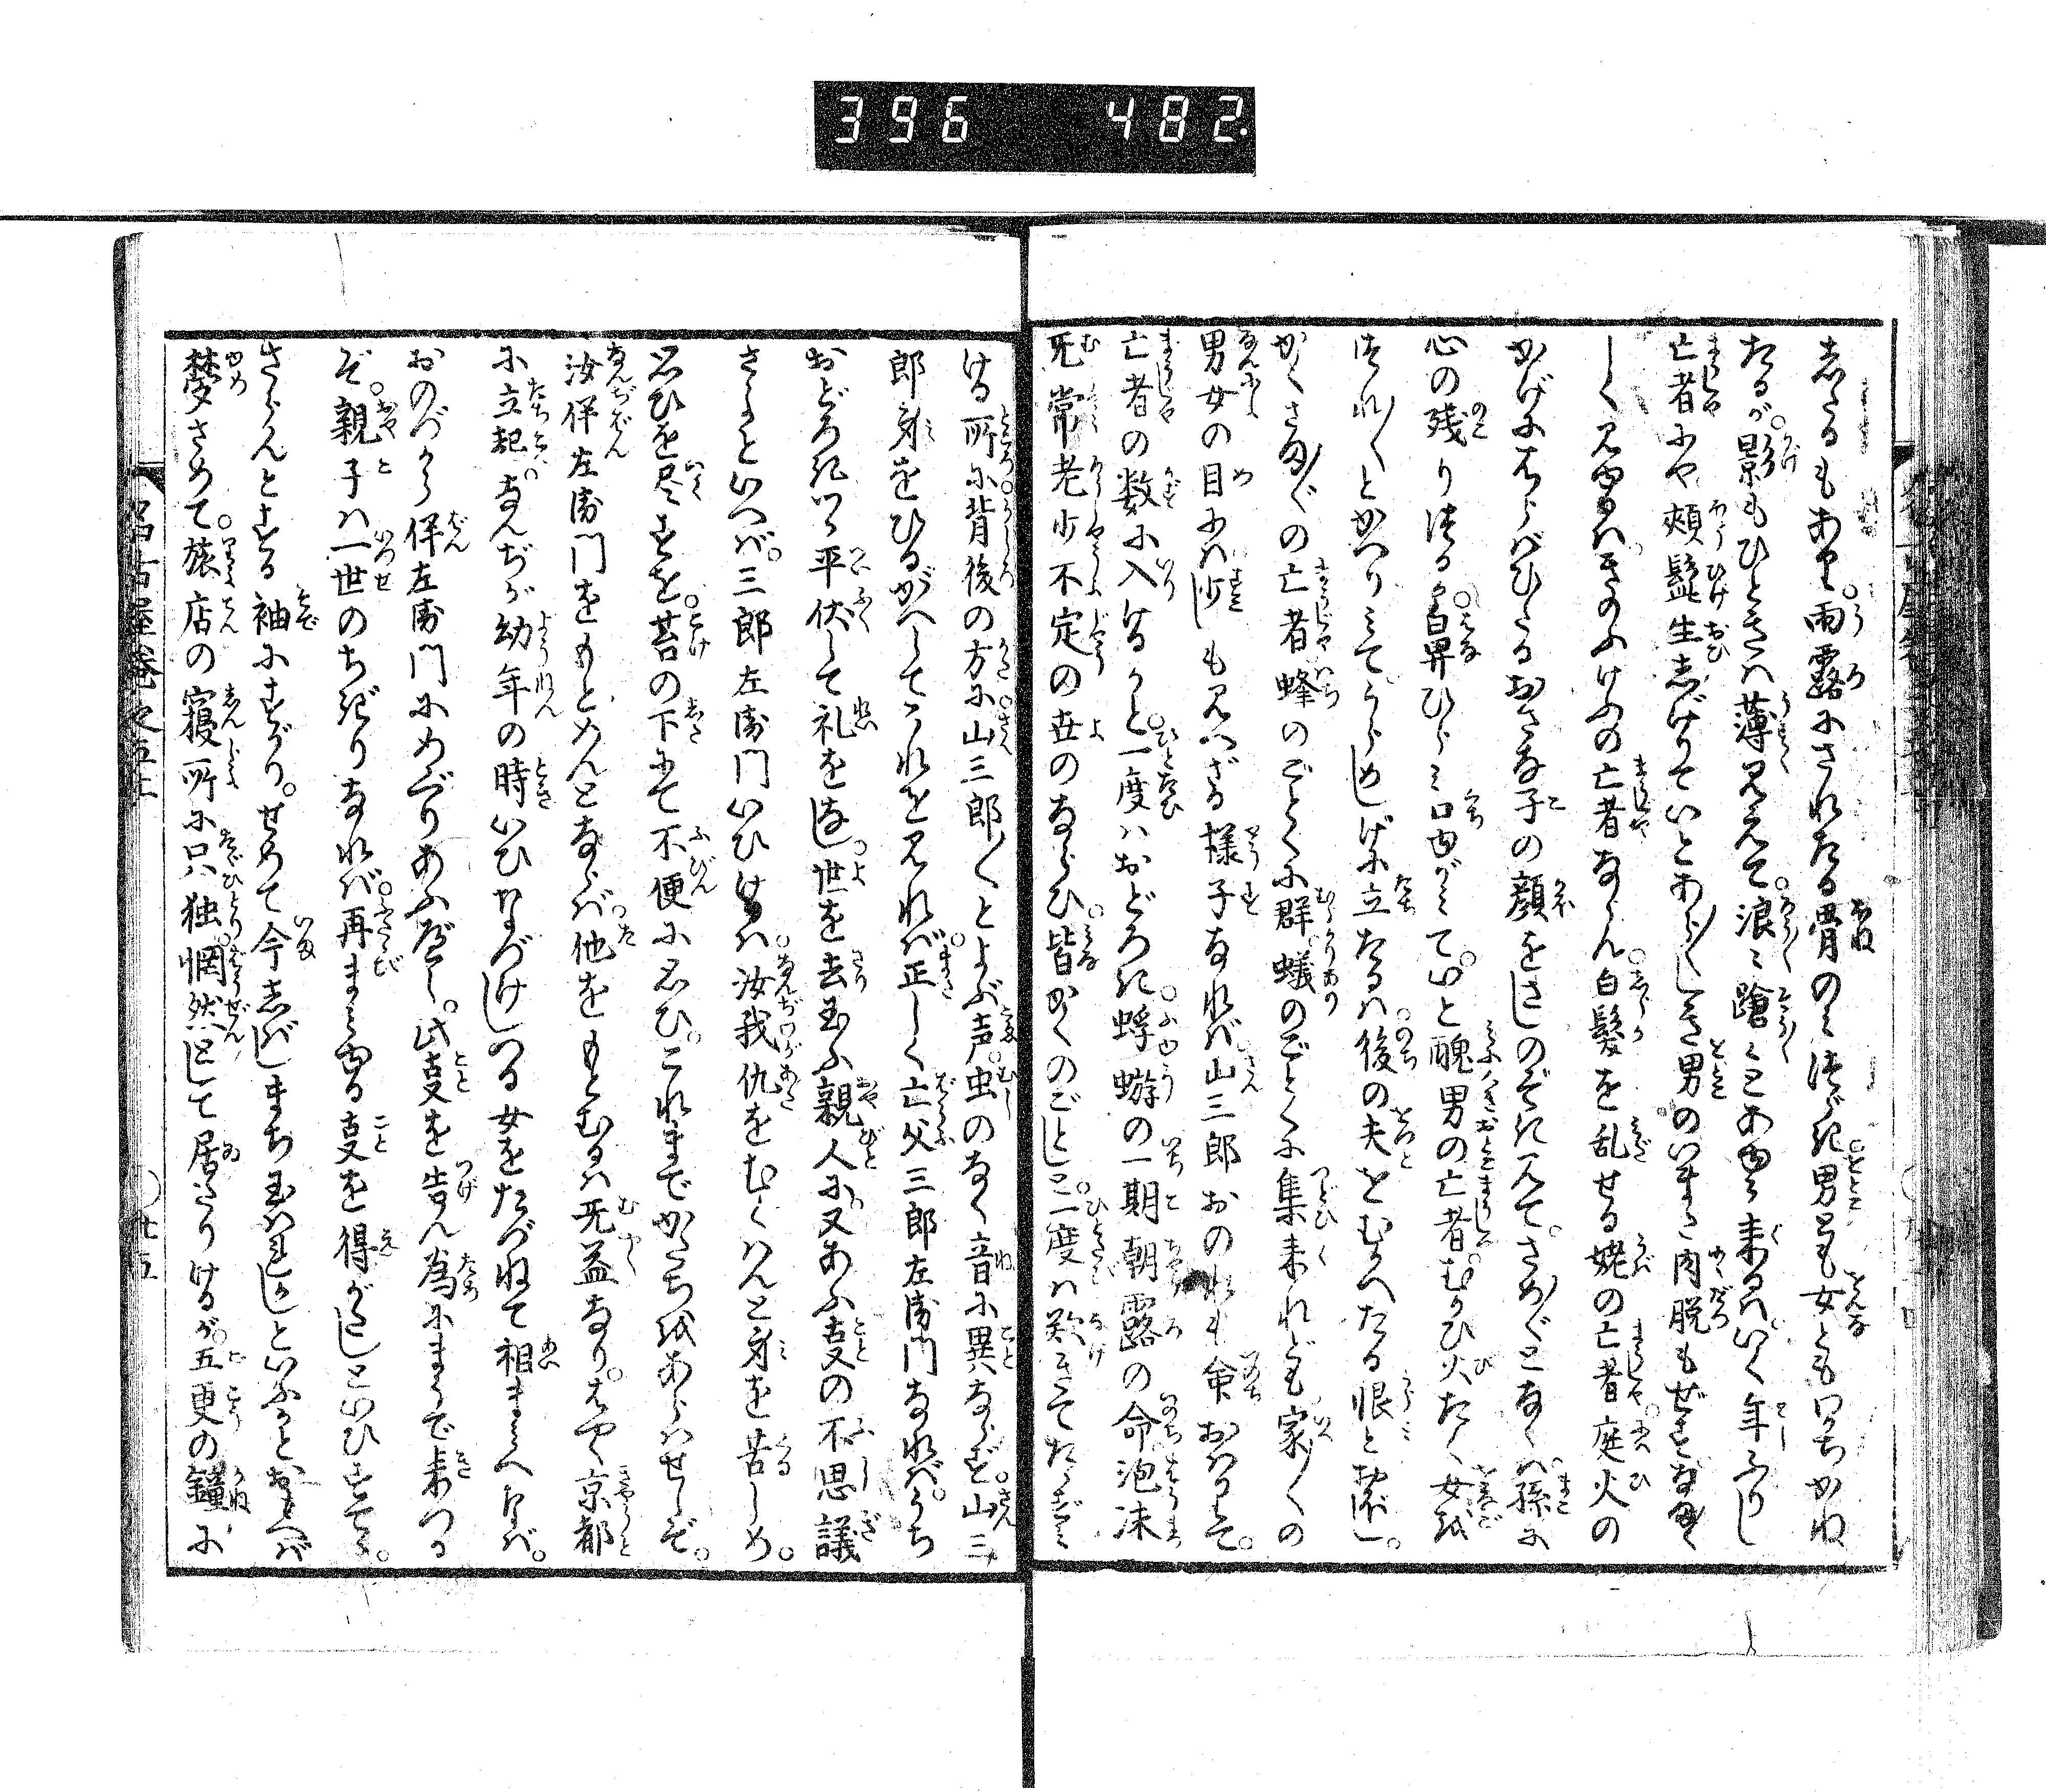 396 482
したるもあり。雨露にされたる骨のみつゞき男とも女ともわかちかね
たるが。影もひときは薄見えて。浪々蹌々とあゆみ来るは。いく年ふりし
亡者にや頬髭生しげりていとあら〳〵しき男のいまだ肉脱もせずなま〳〵
しく見ゆるは。きのふけふの亡者ならん。白髪を乱せる姥の亡者。庭火の
かげにまろびひたるおさな子の顔をさしのぞき見て。さめ〴〵となくは。孫に
心の残りつる。鼻ひらみ口ゆがみて。いと醜男の亡者。むかひ火たく女を
つれ〳〵とかへりみて。うらめしげに立たるは。後の夫をむかへたる恨とおぼし。
かくさま〴〵の亡者蜂のごとくに群。蟻のごとくに集来れども。家〳〵の
男女の目には少しも見へざる様子なれば。山三郎おのれも命おはりて。
亡者の数に入けるかと。一度はおどろき。蜉蝣の一期朝露の命。泡沫
无常老少不定の世のならひ。皆かくのごとしと。一度は歎きてたゝずみ
ける所に。背後の方に。山三郎〳〵とよぶ声。虫のなく音に異ならず。山三
郎身をひるがへしてこれを見れば。正しく亡父三郎左衛門なれば。うち
おどろきつゝ平伏して礼をなし。世を去玉ふ親人に。又あふ事の不思議
さよといへば。三郎左衛門いひけるは。汝我仇をむくはんと身を苦しめ。
思ひを尽すを。苔の下にて不便に思ひ。これまでかたちをあらはせしぞ。
汝伴左衛門をもとめんとならば。他をもとむるは无益なり。はやく京都
に立起。なんぢが幼年の時いひなづけしつる女をたづねて相まみへなば。
おのづから伴左衛門にめぐりあふべし。此事を告ん為にまうで来つる
ぞ。親子は一世のちぎりなれば。再まみゆる事を得がたしといひすてゝ。
さらんとする袖にすがり。せめて今しばしまち玉はれかしといふかとおもへば
夢さめて。旅店の寝所に只独。惘然として居たりけるが。五更の鐘に
名古屋巻之五上 〇廿五